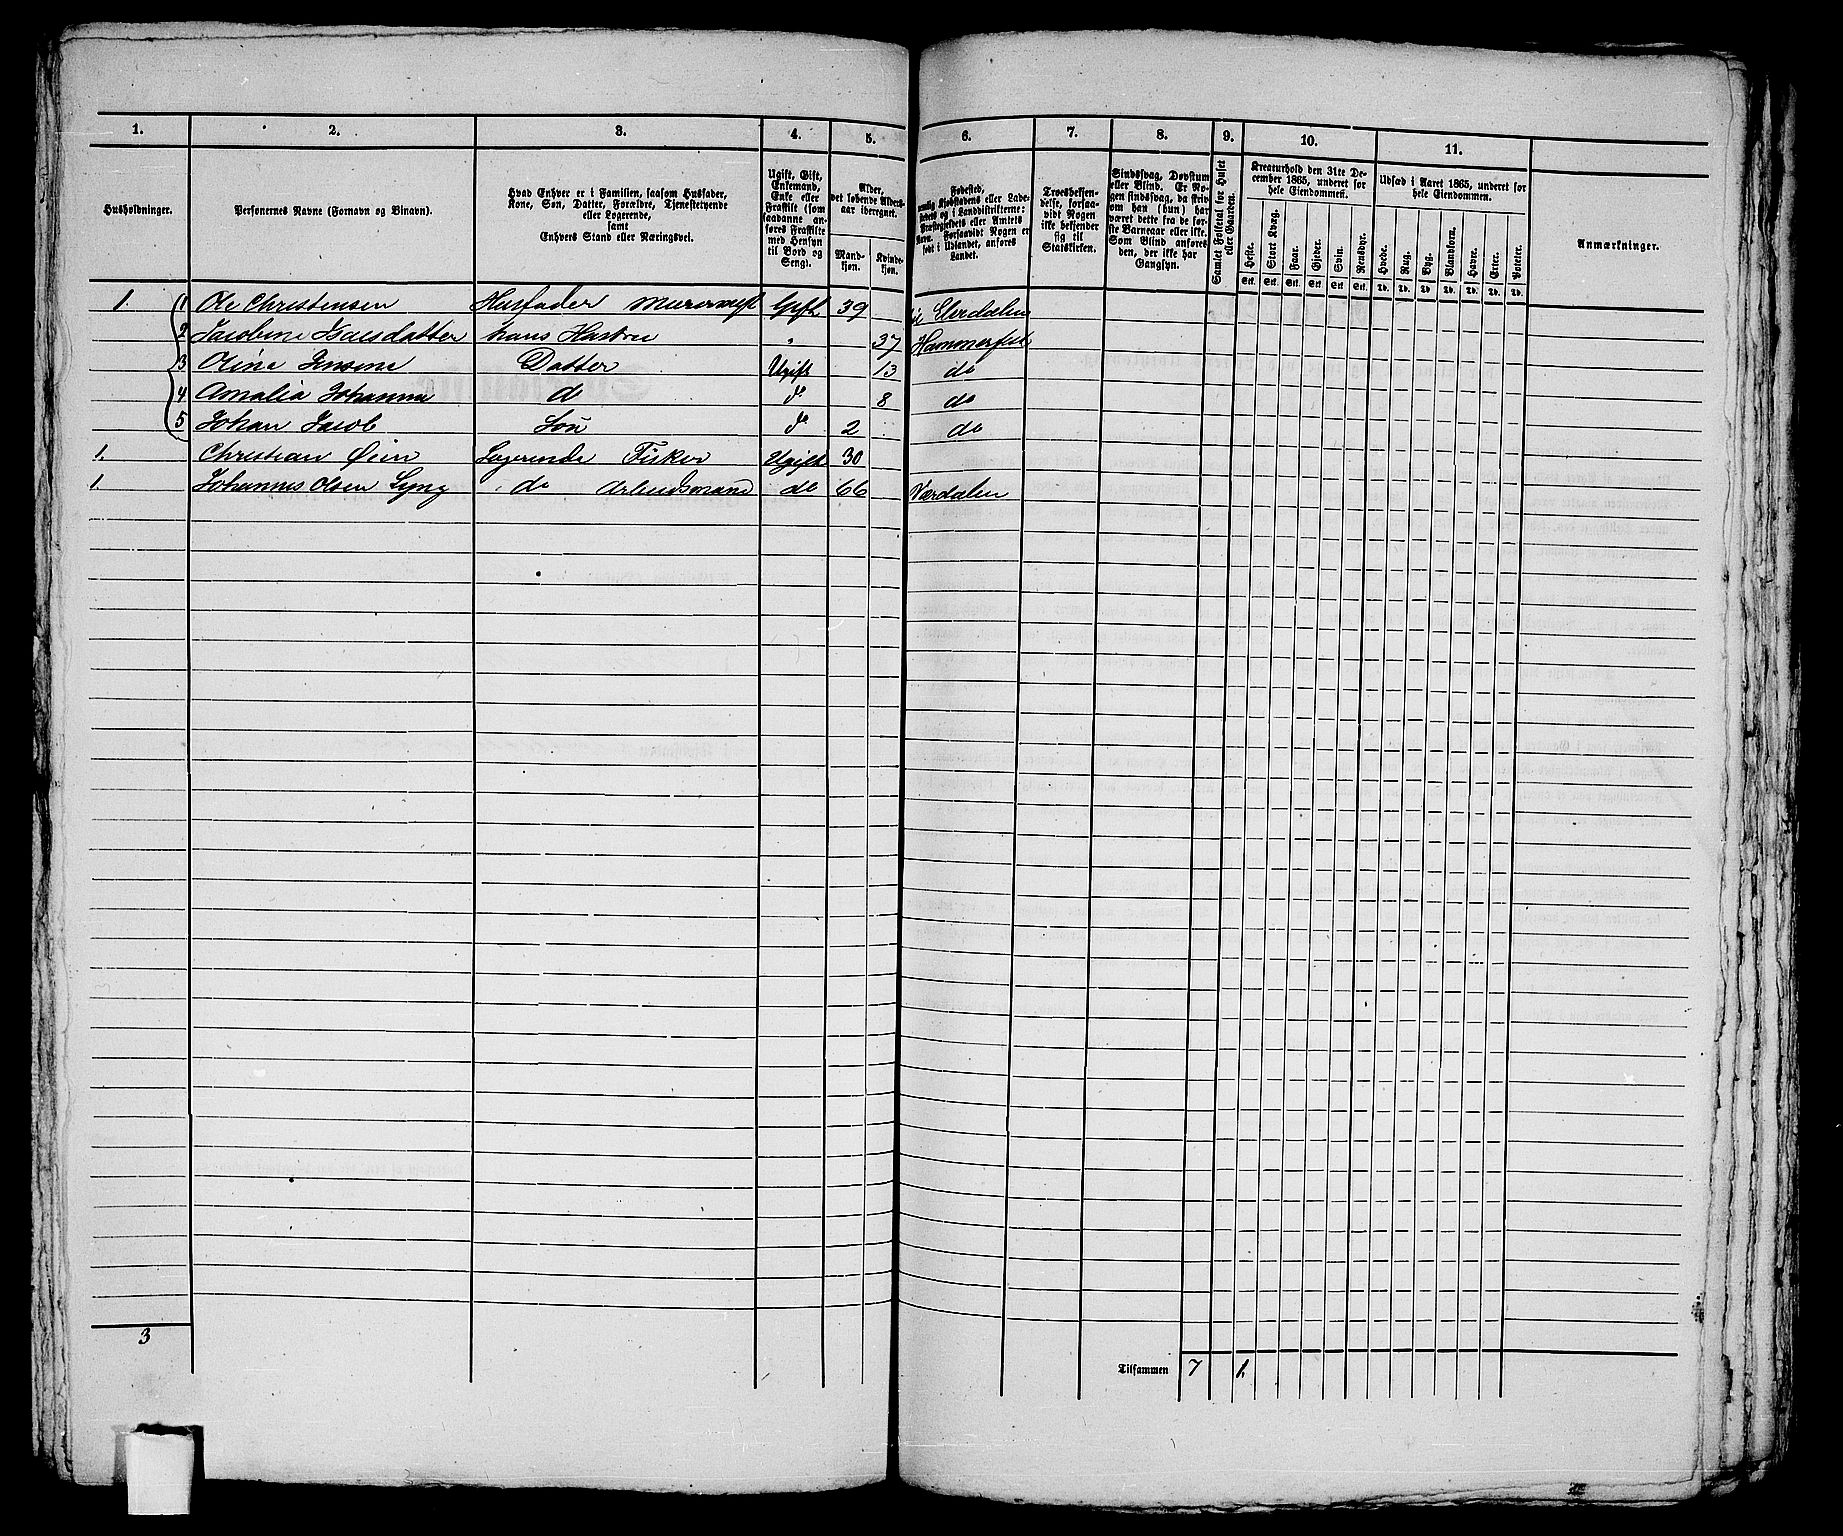 1. 2. 3. 4. 5. 6. 7. 8. 9. 10. 11.
Husholdninger.
Personernes Navne (Fornavn og Binavn).
Hvad Enhver er i Familien, saasom Husfader,
Kone, Søn, Datter, Forældre, Tjenestetyende
eller Logerende,
samt
Enhvers Stand eller Næringsvei.
Ugift, Gift,
Enkemand,
Enke eller
Fraskilt (som
saadanne an-
føres Fraskilte
med Hensyn
til Bord og
Seng).
Alder,
det løbende Alders-
aar iberegnet.
Mand-
kjøn.
Kvinde-
kjøn.
Fødested,
Kjøbstadens eller Lade-
og i Landdistrikterne:
Præstegjeldets eller Amtets
Navn. Forsaavidt Nogen er
født i Udlandet, anføres
Landet.
Troesbekjen-
delse, forsaa-
vidt Nogen
ikke bekjender
sig til
Statskirken.
Sindssvag, Døvstum
eller Blind. Er No-
gen sindssvag, da skriv
om han (hun) har
været dette fra de før-
ste Barneaar eller ikke.
Som Blind anføres
den, der ikke har
Gangsyn.
Samlet Folketal for Huset
eller Gaarden.
Kreaturhold den 31te De-
cember 1865, underet for
hele Eiendommen.
Heste. Stort Kvæg. Faar. Gjeder. Svin. Rensdyr.
Stk. Stk. Stk. Stk. Stk. Stk.
Udsæd i Aaret 1865, underet for
hele Eiendommen.
Hvede. Rug. Byg. Blandkorn. Havre. Erter. Poteter.
Td. Td. Td. Td. Td. Td. Td.
Anmærkninger.
1. 1 Ole Christensen Husfader Murermest Gift 39 Elerdalen
2 Jacobine Isacsdatter hans Hustru " 37 Hammerfest
3 Oline Jensine Datter Ugift 13 do
4 Amalia Johanna d do 8 do
5 Johan Jacob Søn do 2 do
1. Christian Øien Logerende Fisker Ugift 30
1. Johannes Olsen Lyng do Arbeidsmand do 66 Værdalen
3
Tilsammen 7 1